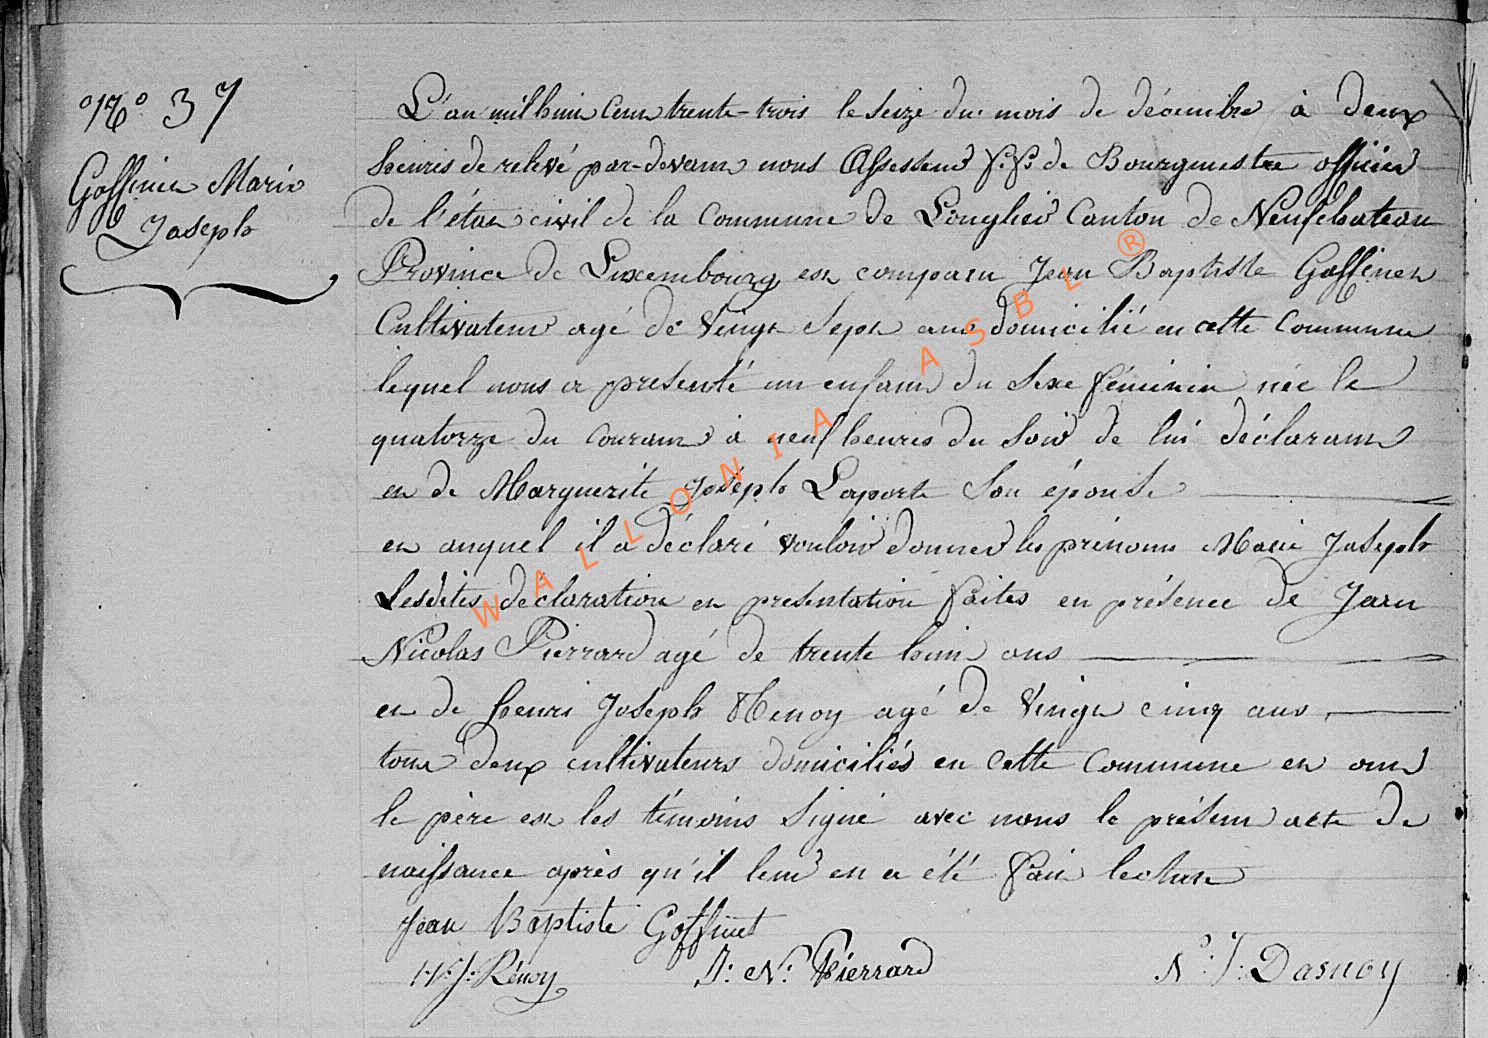 N.o 37
Goffinet Marie
Joseph
L'an mil huit cent trente-trois le seize du mois de décembre à deux
heures de relevé par-devant nous Assesseur f.f. de Bourgmestre officier
de l'état civil de la Commune de Longlier Canton de Neufchateau
Province de Luxembourg est comparu Jean Baptiste Goffinet
Cultivateur agé de Vingt Sept ans domicilié en cette Commune
lequel nous a presenté un enfant du Sexe féminin née le
quatorze du Courant à neuf heures du Soir de lui déclarant
et de Marguerite Joséph Laporte Son épouse
et auquel il a déclaré vouloir donner les prénoms Marie Joseph
Lesdites déclaration et presentation faites en présence de Jean
Nicolas Pierrard agé de trente huit ans
et de henri Joseph Renoy agé de Vingt cinq ans
tous deux cultivateurs domiciliés en cette Commune et ont
le père et les témoins Signé avec nous le présent acte de
naissance après qu'il leur en a été fait lecture
Jean Baptiste Goffinet
H. J. Rénoy J. N. Pierrard N. J. Dasnoy
WALLONIA ASBL ®